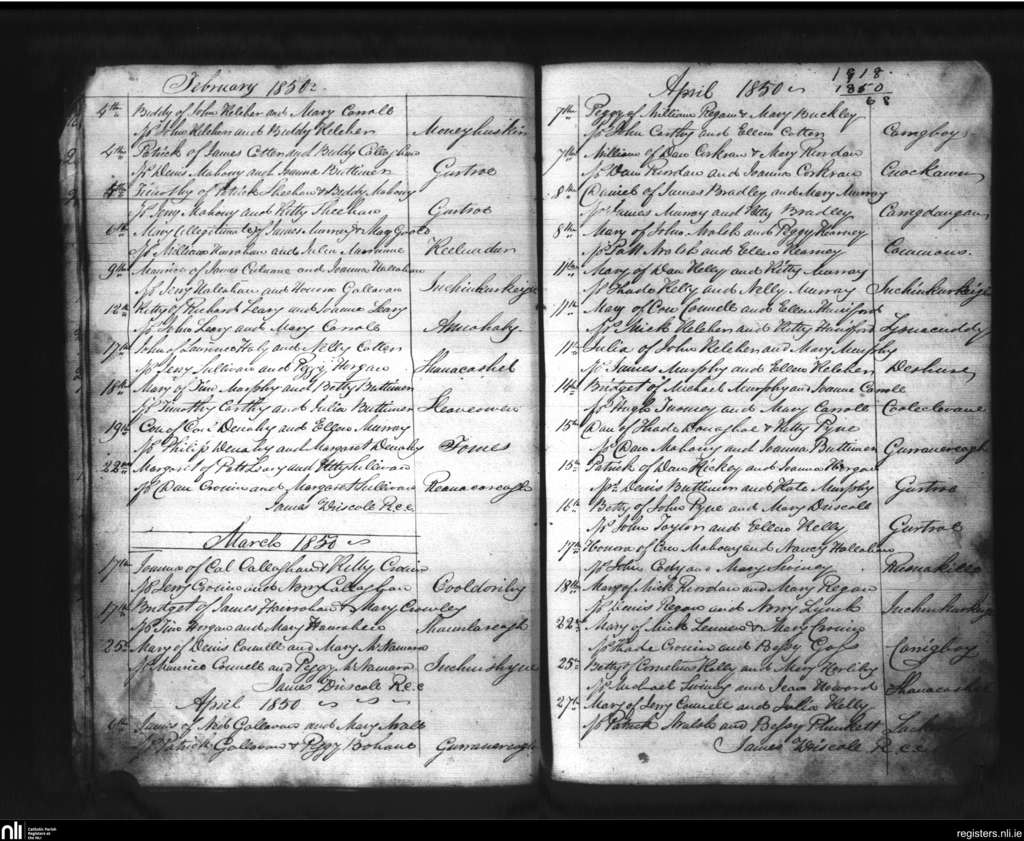 February 1850
4th Biddy of John Keleher and Mary Carroll
Sps John Keleher and Biddy Keleher Moneyhuskin
4th Patrick of James Cotter and Biddy Callaghan
Sps Denis Mahony and Joanna Buttimer Gurtroe
4th Timothy of Patrick Sheehan & Biddy Mahony
Sps Jerry Mahony and Kitty Sheehan Gurtroe
6th Mary (illegitimate) of James Murray & Mary
Sps William Hanrahan and Julia
9th Maurice of James and Joanna Hallahan
Sps Jerry Hallahan and Honora Gallavan Inchinkurkeige
12th Kitty of Richard Leary and Joanna Leary
Sps John Leary and Mary Carroll
17th John of Laurence Haly and Nelly Cotter
Sps Jerry Sullivan and Peggy Horgan Shanacashel
18th Mary of Tim Murphy and Betty Buttimer
Sps Timothy Carthy and Julia Buttimer
19th Con of Con Denahy and Ellen Murray
Sps Philip Denahy and Margaret Denahy Tomes
22nd Margaret of Patt Leary and Kitty Sullivan
Sps Dan Cronin and Margaret Sullivan Reanacareagh
James Driscole R.C.C
March 1850
17th Joanna of Cal Callaghan & Kitty Cronin
Sps Jerry Cronin and Nory Callaghan Cooldoriby
17th Bridget of James Hanrahan & Mary Crowley
Sps Tim Horgan and Mary Hanrahan Shauntareagh
25th Mary of Denis Connell and Mary McNamara
Sps Maurice Connell and Peggy McNamara Inchinshyne
James Driscole R.C.C
April 1850
6th James of Neil Gallavan and Mary
Sps Patrick Gallavan & Peggy Bohane Gurranereagh
April 1850
1918
1850
68
7th Peggy of William Regan & Mary Buckley
Sps John Carthy and Ellen Cotter Carrigboy
7th William of Dan Corkran & Mary Riordan
Sps Dan Riordan and Joanna Corkran
8th Daniel of James Bradley and Mary Murray
Sps James Murray and Kitty Bradley Carrigdangan
8th Mary of John Walsh and Peggy Kearney
Sps Patt Walsh and Ellen Kearney Commons.
11th Mary of Dan Kelly and Kitty Murray
Sps Thade Kelly and Nelly Murray Inchinkurkeige
11th Mary of Con Connell and Ellen Hurriford
Sps Mick Keleher and Kitty Hurriford Lyonacuddy
11th Julia of John Keleher and Mary Murphy
Sps James Murphy and Ellen Keleher Deshure
14th Bridget of Michael Murphy and Joanna Carroll
Sps Hugh Twomey and Mary Carroll Cooleclevane
15th Dan of Thade Donoghue & Kitty Pyne
Sps Dan Mahony and Joanna Buttimer Gurranereagh
15th Patrick of Dan Hickey and Joanna Horgan
Sps Denis Buttimer and Kate Murphy Gurtroe
16th Betty of John Pyne and Mary Driscole
Sps John Taylor and Ellen Kelly Gurtroe
17th Honora of Con Mahony and Nancy Hallahan
Sps John Cody and Mary Swiney
18th Mary of Mick Riordan and Mary Regan
Sps Denis Regan and Nory Lynch Inchinkurkeige
22nd Mary of Mick Lenane & Mary Cronin
Sps Thade Cronin and Bessy Goss Carrigboy
25th Betty of Cornelius Kelly and Mary Herlihy
Sps Michael Swiney and Jean Howard Shanacashel
27th Mary of Jerry Connell and Julia Kelly
Sps Patrick Walsh and Bessy Plunkett
James Driscole R.C.C
nli Catholic Parish
Registers at
the NLI
registers.nli.ie